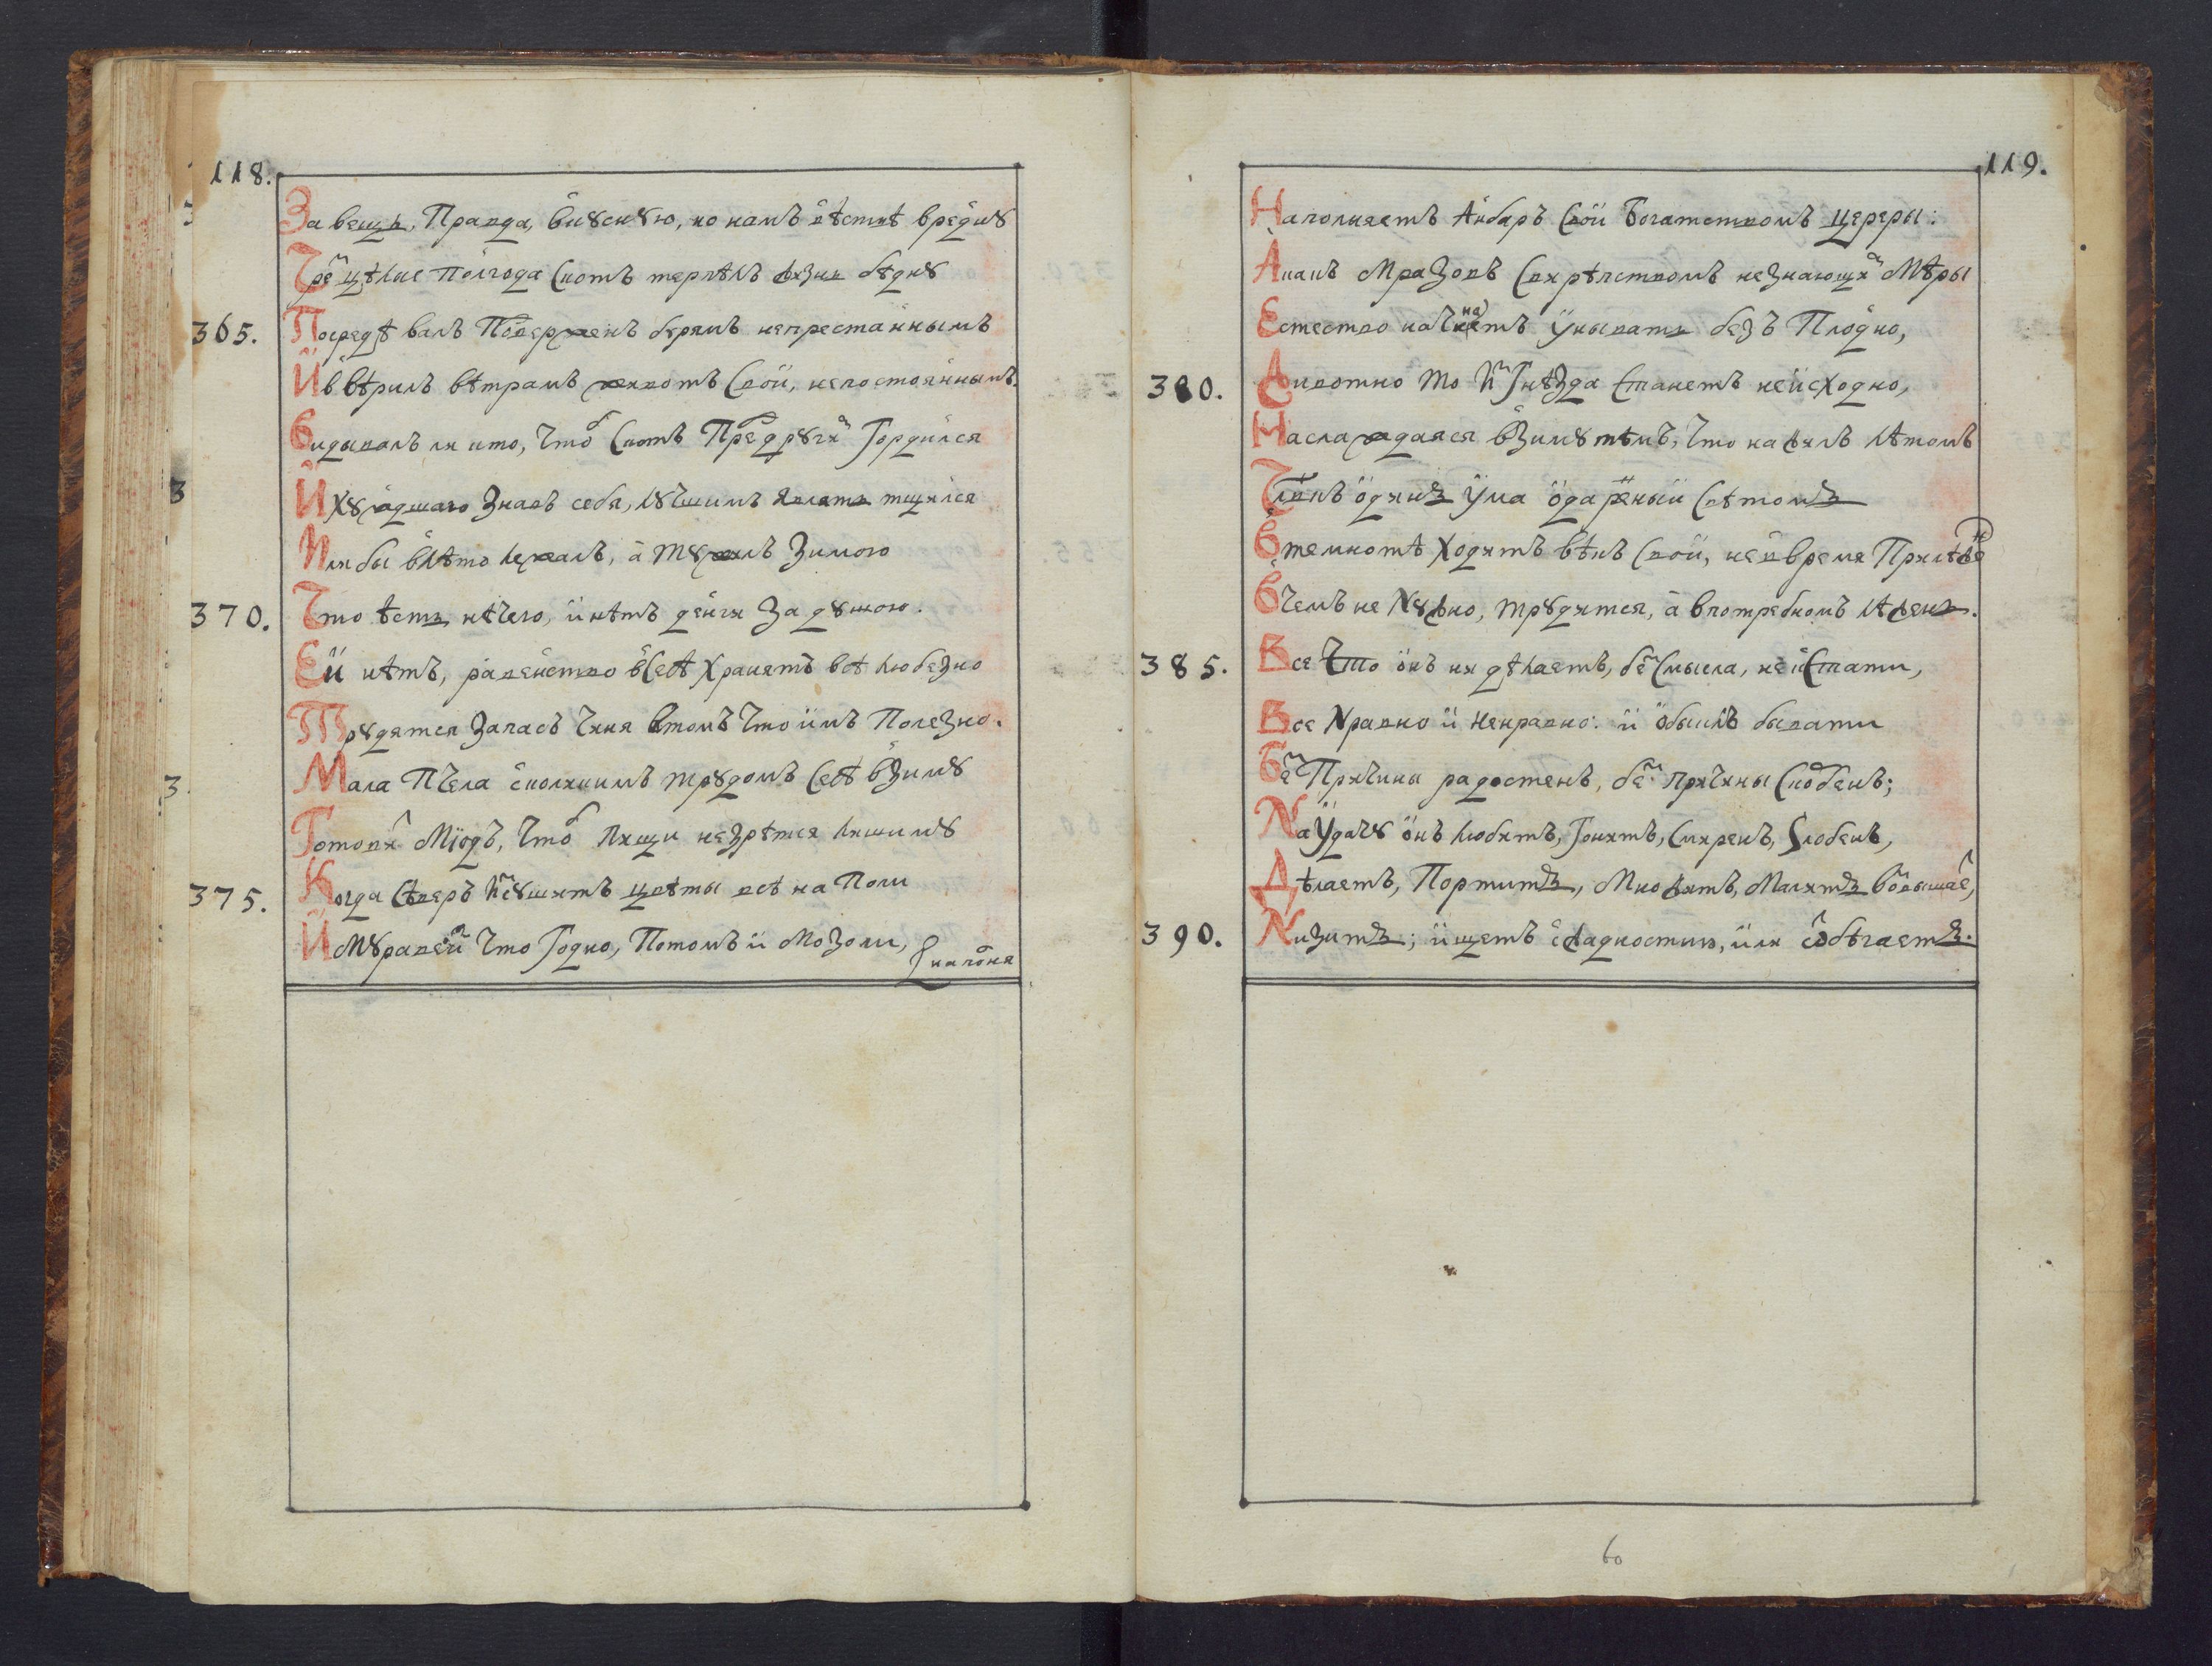 118.
За вещь, Правда, вкусную, но намъ вѣстнѣ вредну
Чре цѣлые полгода скотъ терпѣлъ жизнь бѣдну
365. Посредѣ валъ Поверженъ бурямъ непрестаннымъ
И ввѣрилъ вѣтрамъ животъ свой, непостояннымъ.
Видывалъ ли кто, чтоб скотъ Пред другим Гордился
И худшаго знавъ себя, лучшимъ являть тщился
Или бы влѣто лежалъ, а тужилъ Зимою
370. Что ѣсть нѣчего, и нѣтъ денги за душою.
Ей нѣтъ, равенство въ себѣ хранятъ всѣ любезно
Трудятся запасъ чиня втомъ что имъ Полезно.
Мала Пчела сколикимъ трудомъ себѣ взиму
Готовит Міодъ, чтоб пищи незрѣтся лишиму
375. Когда сѣверъ иссушитъ цвѣты всѣ на Поли
И Муравей что Годно, Потомъ и Мозоли,
наполня
119.
Наполняетъ Анбаръ свой Богатствомъ цереры:
А какъ Мразовъ свирѣпствомъ незнающих Мѣры
Естество начнетъ унывать безъ Плодно,
380. Животно то из Гнѣзда станетъ неисходно,
Наслаждаяся взиму тѣмъ, что нажилъ лѣтомъ
Члвкъ одинъ ума одареный свѣтомъ
Втемнотѣ ходитъ вѣкъ свой, не в время Прилѣжен
Вчемъ не нужно, трудится, а впотребномъ лѣженъ.
385. Все что онъ ни дѣлаетъ, без смысла, не кстати,
Все нравно и ненравно: и обыклъ бывати
Без Причины радостенъ, без причины скобенъ;
На Удачу онъ любитъ, Гонитъ, смиренъ, злобенъ,
Дѣлаетъ, Портитъ, Множитъ, Малитъ возвышает,
390. Низитъ; ищетъ с жадностию, или отбѣгаетъ.
60